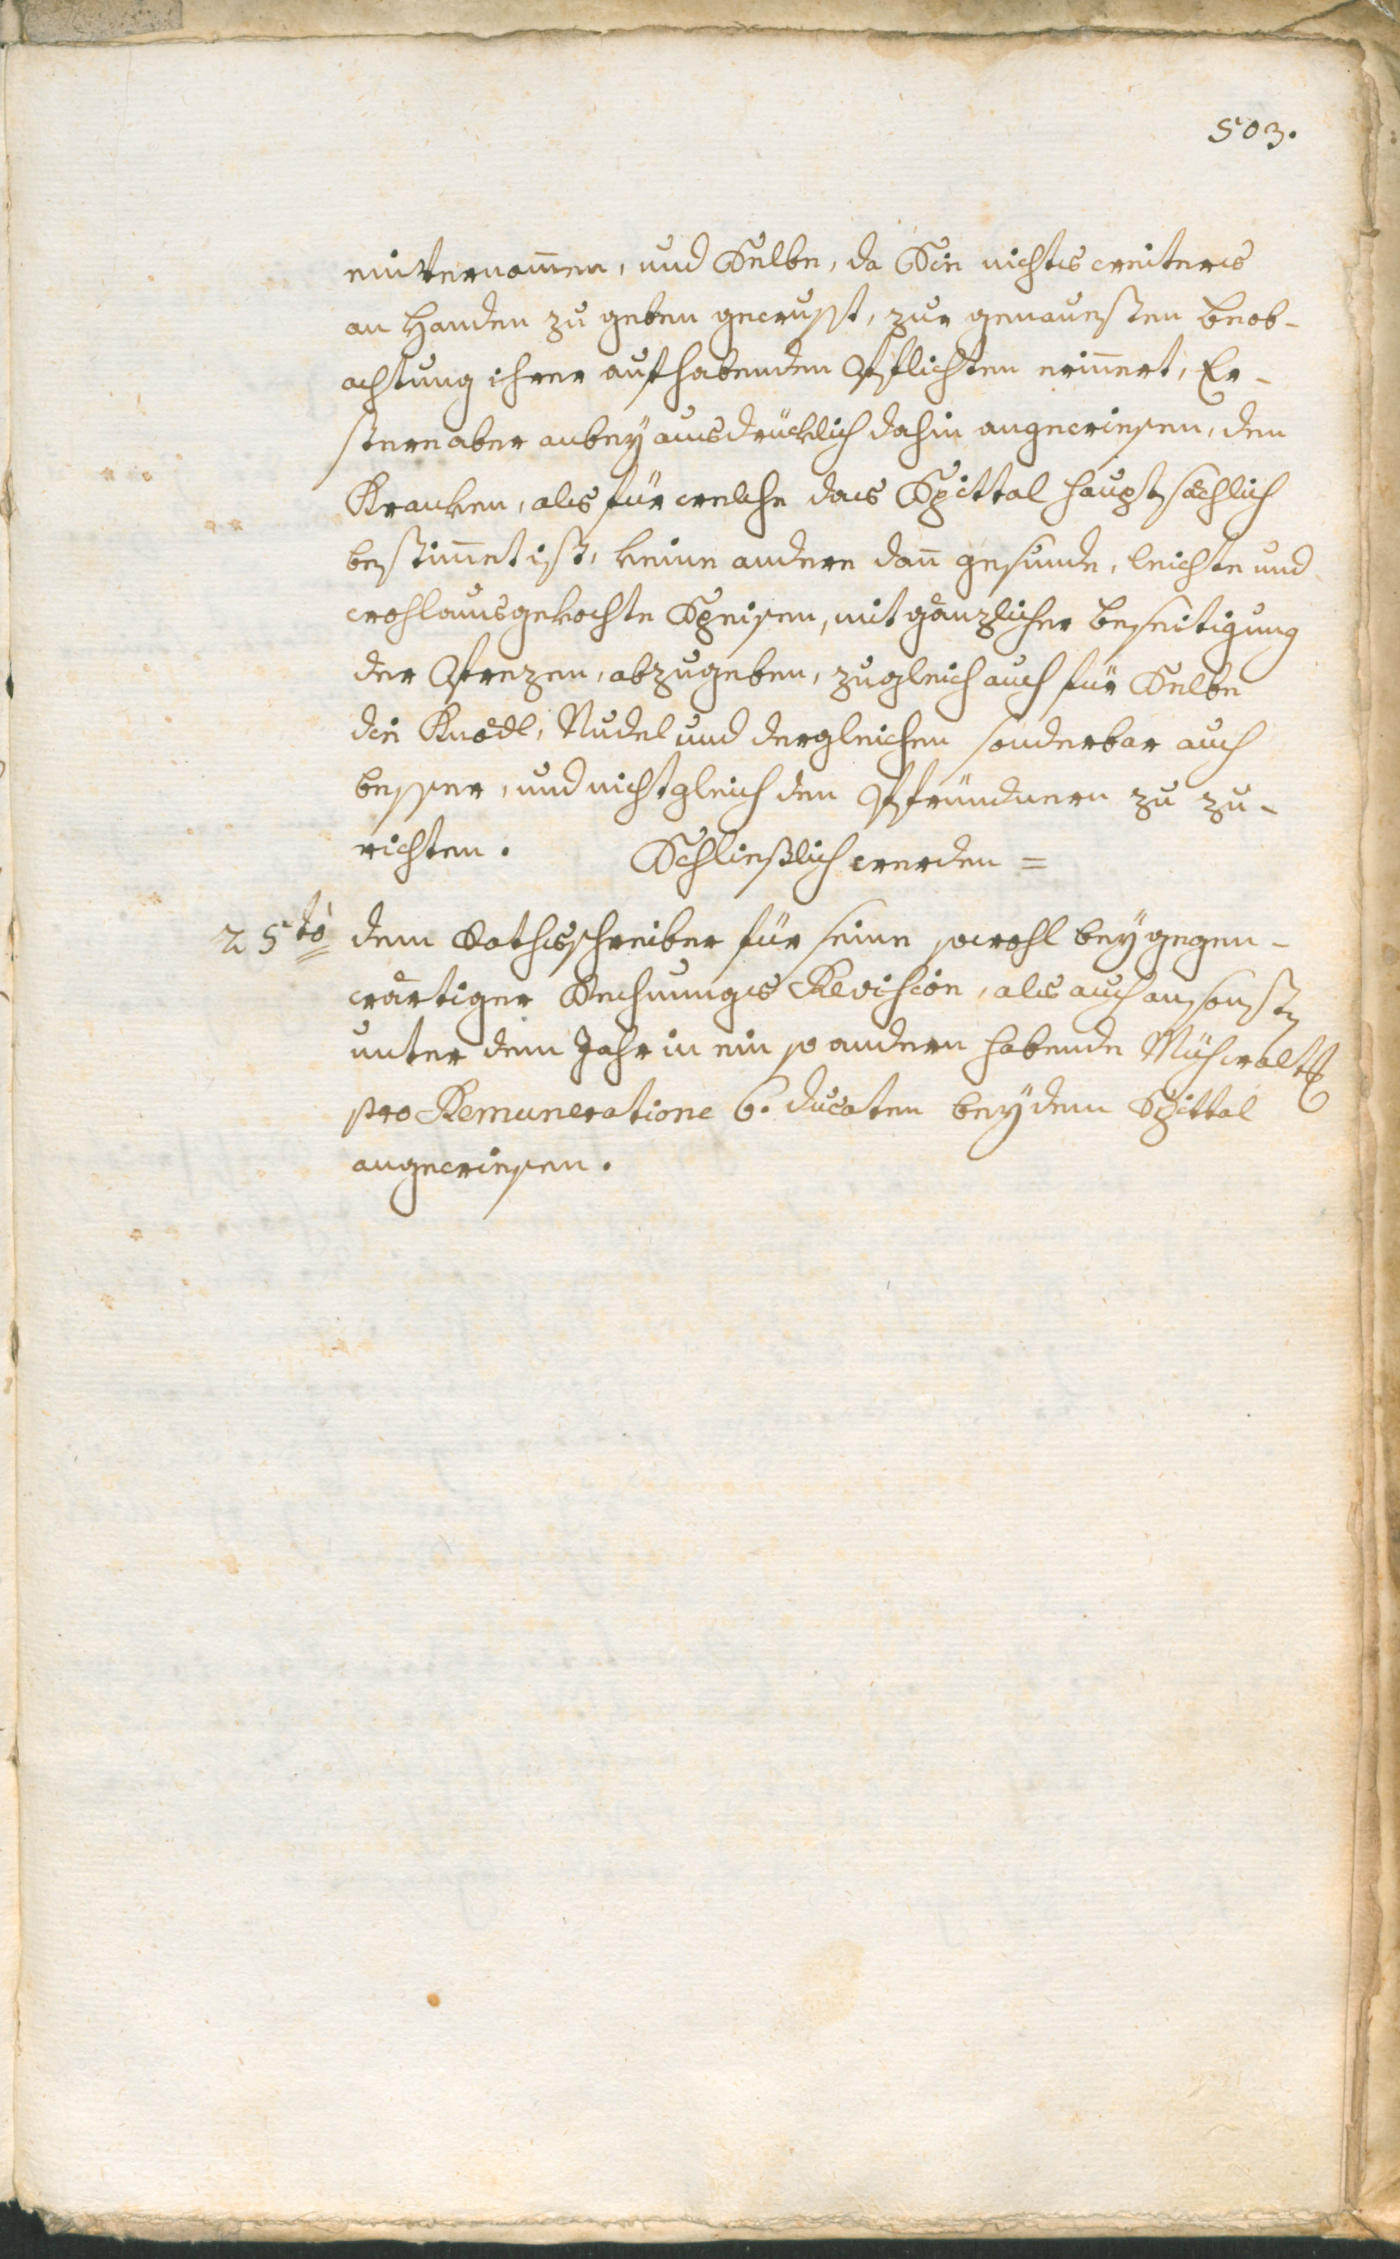 503.
einvernom̅en, und Selbe, da Sie nichts weiters
an Handen zu geben gewusst, zur genauesten beob-
achtung ihrer aufhabenden Pflichten erin̅ert, Er-
stere aber anbey ausdrücklich dahin angewiesen, den
Kranken, als für welche das Spittal haupts̈achlich
bestim̅et ist, keine andere dan̅ gesunde, leichte und
wohlausgekochte Speisen, mit gänzlicher beseitigung
der Pfrezen, abzugeben, zugleich auch für Selbe
die Knödl, Nudel und dergleichen sonderbar auch
besser, und nicht gleich den Pfründnern zu zu-
richten. Schließlich werden =
25to dem Rathsschreiber für seine sowohl bey gegen-
wärtiger Rechnungs Revision, als auch ansonst
unter dem Jahr in ein so andern habende Mühwalt
pro Remuneratione 6. ducaten bey dem Spittal
angewiesen.